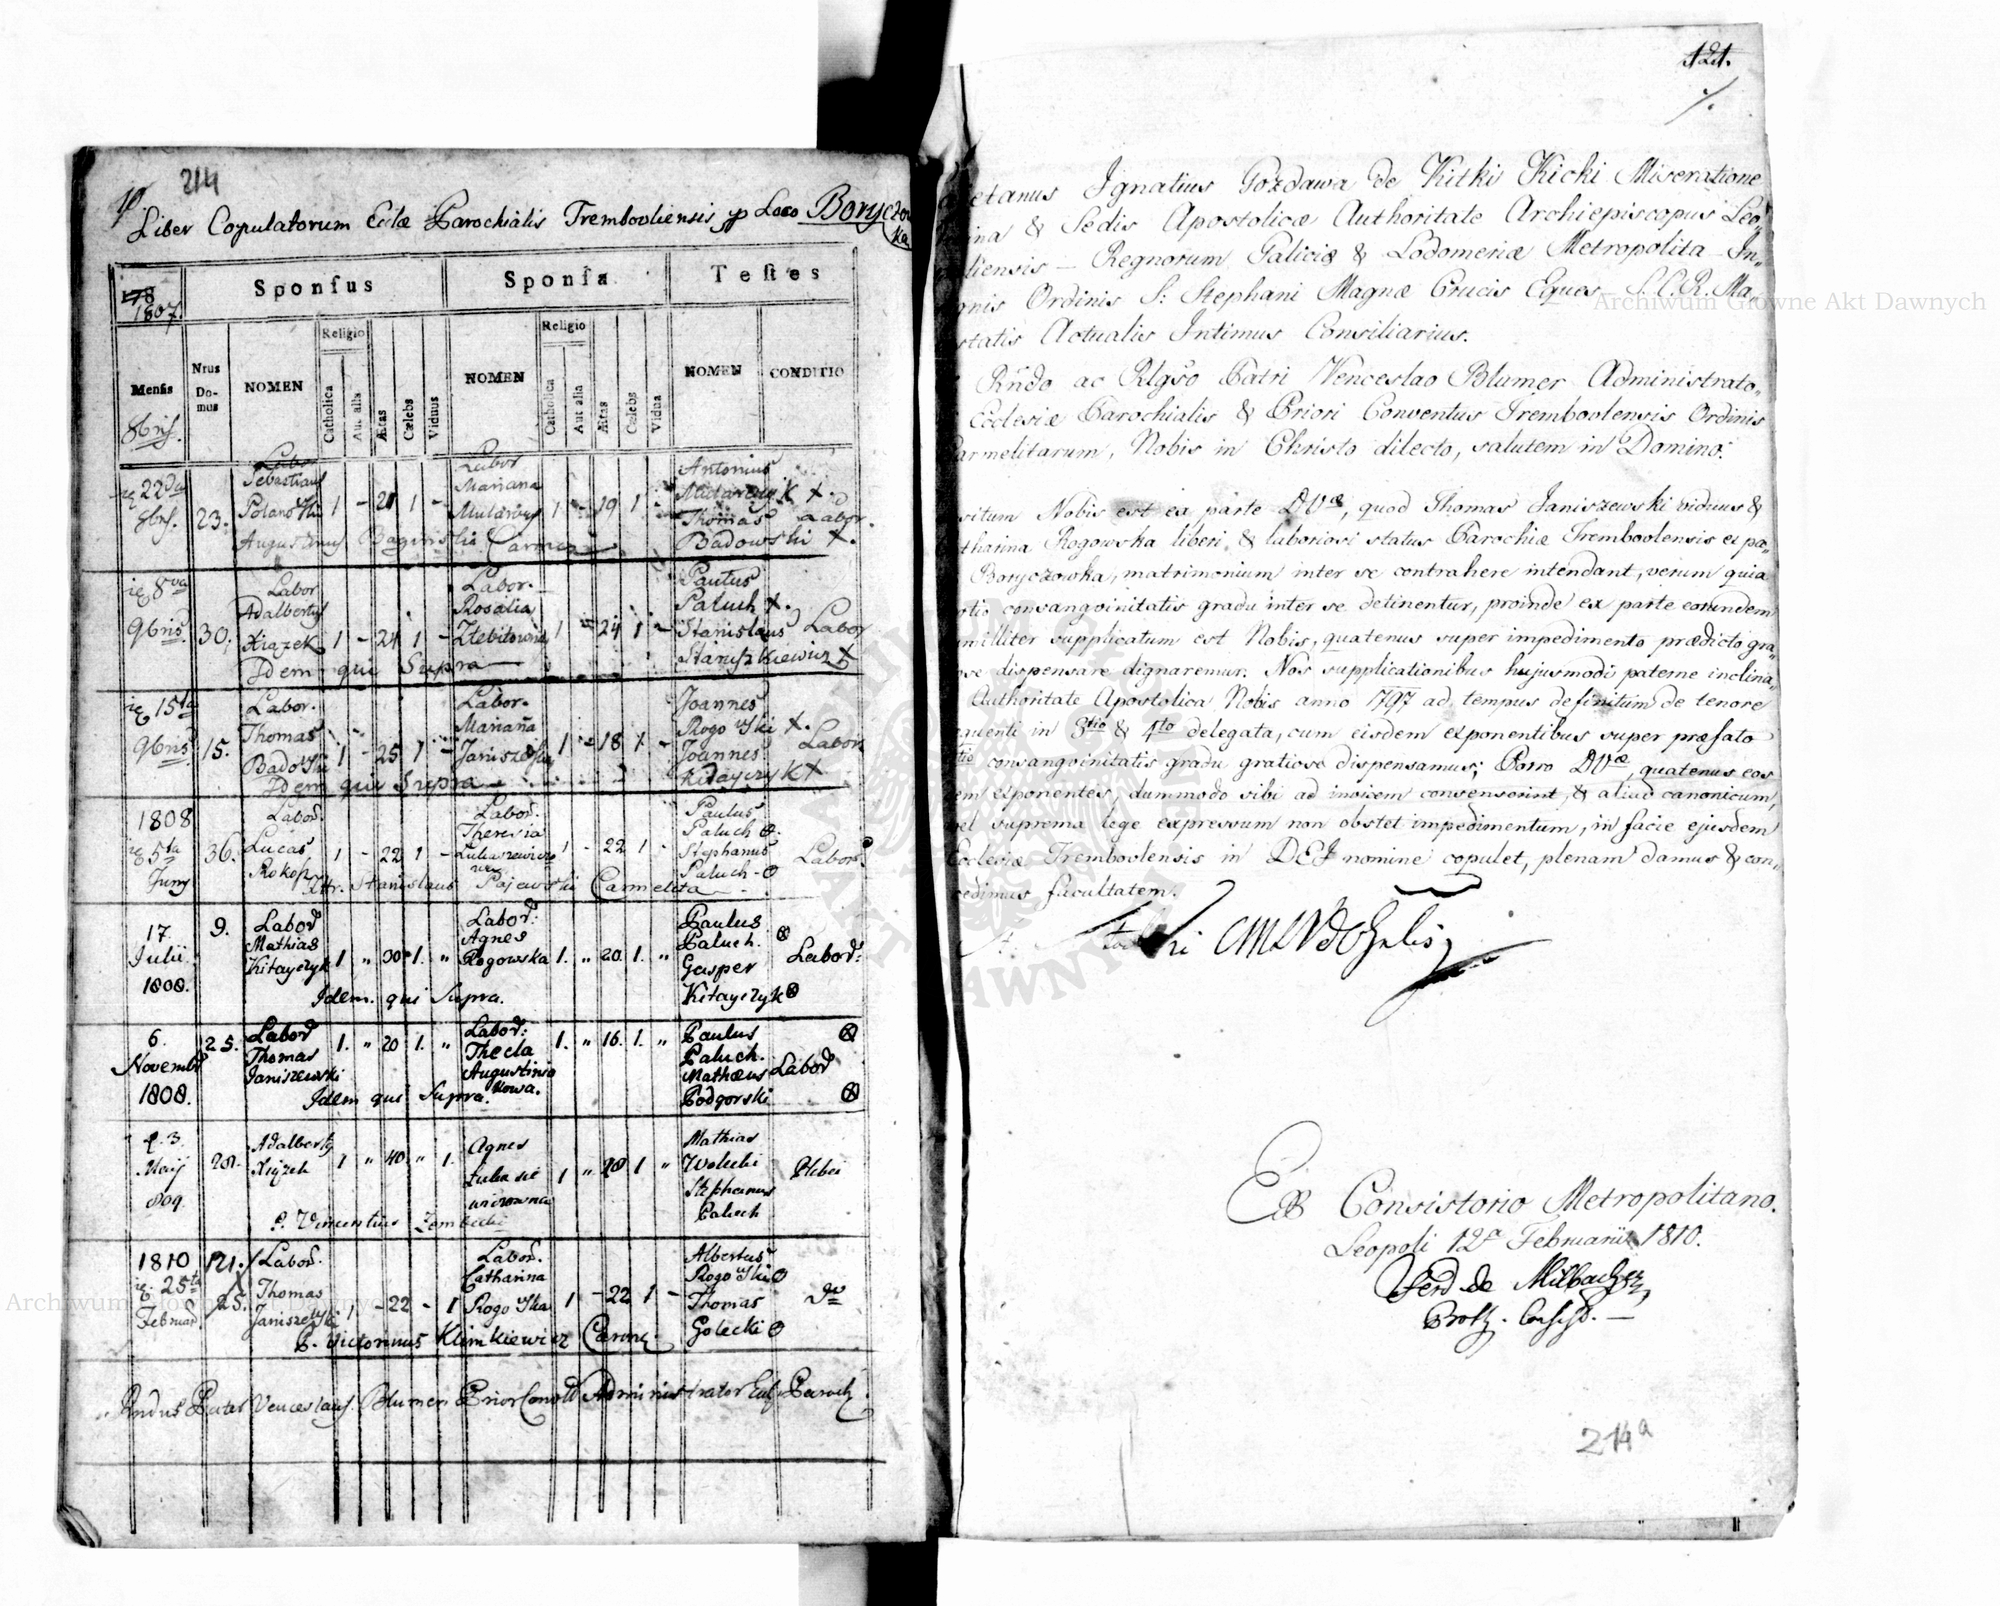 214
Liber Copulatorum Eccłæ Parochialis Trembovliensis p Loco Boryczow
ka
178
1807.
Sponsus
Sponsa
Testes
Mensis
8bris.
Nrus Domus
NOMEN
Religio
Catholica
Aut alia
Ætas
Cælebs
Viduus
NOMEN
Religio
Catholica
Aut alia
Ætas
Cælebs
Vidua
NOMEN
CONDITIO
22da 8bris. 23.
Labor
Sebastianus
1 - 21 1 -
Labor
Mariana
1 - 19 1 -
Antonius
Thomas
Badowski X.
Labor.
Augustinus Carmel
ie 8va 9bris 30.
Labor
Adalbertus
Xiązek
1 - 24 1 -
Labor.
Rosalia
1 - 24 1 -
Paulus
Paluch X.
Stanislaus
Staruszkiewicz X
Labor
Idem qui Supra
ie 15ta 9bris 15.
Labor.
Thomas
Badowski
1 - 25 1 -
Labor.
Mariana
Janiszewska
1 - 18 1 -
Joannes
Rogowski X.
Joannes
Kitayczyk X
Labor
Idem qui Supra
1808
ie 5ta
Juny
36.
Labor.
Lucas
Rokosz
1 - 22 1 -
Labor.
Theresia
1 - 22 1 -
Paulus
Paluch
Stephanus
Paluch
Labor.
Stanislaus Pajewski Carmelita
17.
Julii
1808.
9.
Labor
Mathias
Kitayczyk
1 " 30 1. "
Labor:
Agnes
Rogowska
1. " 20. 1. "
Paulus
Paluch.
Gasper
Kitayczyk
Labor:
Idem. qui Supra.
6.
Novembr
1808.
25.
Labor
Thomas
Janiszewski
1. " 20 1. "
Labor:
Thecla
Augustino
kowa.
1. " 16. 1. "
Paulus
Paluch.
Mathæus
Podgorski
Labor
Idem qui Supra.
3.
Maij
809.
Adalbertg
Xiązek
1 " 40 " 1.
Agnes
1 " 1 "
Mathias
Stephanus
Paluch
Plebei
P. Vincentius
1810
ie. 25ta
Februar.
121.
25.
Labor.
Thomas
Janiszewski
1 - 22 - 1
Labor.
Catharina
Rogowska
1 - 22 1 -
Albertus
Rogowski
Thomas
Golecki
P. Victorinus Klimkiewicz Carme.
Rndus Pater Venceslaus Blumer Prior Administrator Paroch.
121.
etanus Ignatius Gozdawa de Kitki Kicki Miseratione
ina & Sedis Apostolicæ Authoritate Archiepiscopus Leo„
liensis — Regnorum Galiciæ & Lodomeriæ Metropolita In„
gnis Ordinis S: Stephani Magnæ Crucis Eques S.C.R. Ma„
statis Actualis Intimus Consiliarius.
Rndo ac Rlgso Patri Venceslao Blumer Administrato„
Ecclesiæ Parochialis & Priori Conventus Trembovlensis Ordinis
armelitarum, Nobis in Christo dilecto, salutem in Domino:
situm Nobis est ex parte DVæ, quod Thomas Janiszewski viduus &
tharina Rogowska liberi & laboriosi status Parochiæ Trembovlensis ex pa„
Boryczowka, matrimonium inter se contrahere intendant, verum quia
rtio consangvinitatis gradu inter se detinentur, proinde ex parte eorundem
milliter supplicatum est Nobis, quatenus super impedimento prædicto gra„
ose dispensare dignaremur. Nos supplicationibus hujusmodi paterne inclina„
Authoritate Apostolica Nobis anno 1797 ad tempus definitum de tenore
quenti in 3tio & 4to delegata, cum eisdem exponentibus super præfato
tio consangvinitatis gradu gratiose dispensamus; Porro DVæ, quatenus eos
em exponentes, dummodo sibi ad invicem consenserint, & aliud canonicum,
vel suprema lege expressum non obstet impedimentum, in facie ejusdem
Ecclesiæ Trembovlensis in DEI nomine copulet, plenam damus & con„
cedimus facultatem.
Ex Consistorio Metropolitano.
Leopoli 12a Februarii 1810.
Ferd de Milbacher
214a
Archiwum Główne Akt Dawnych
Archiwum Główne Akt Dawnych